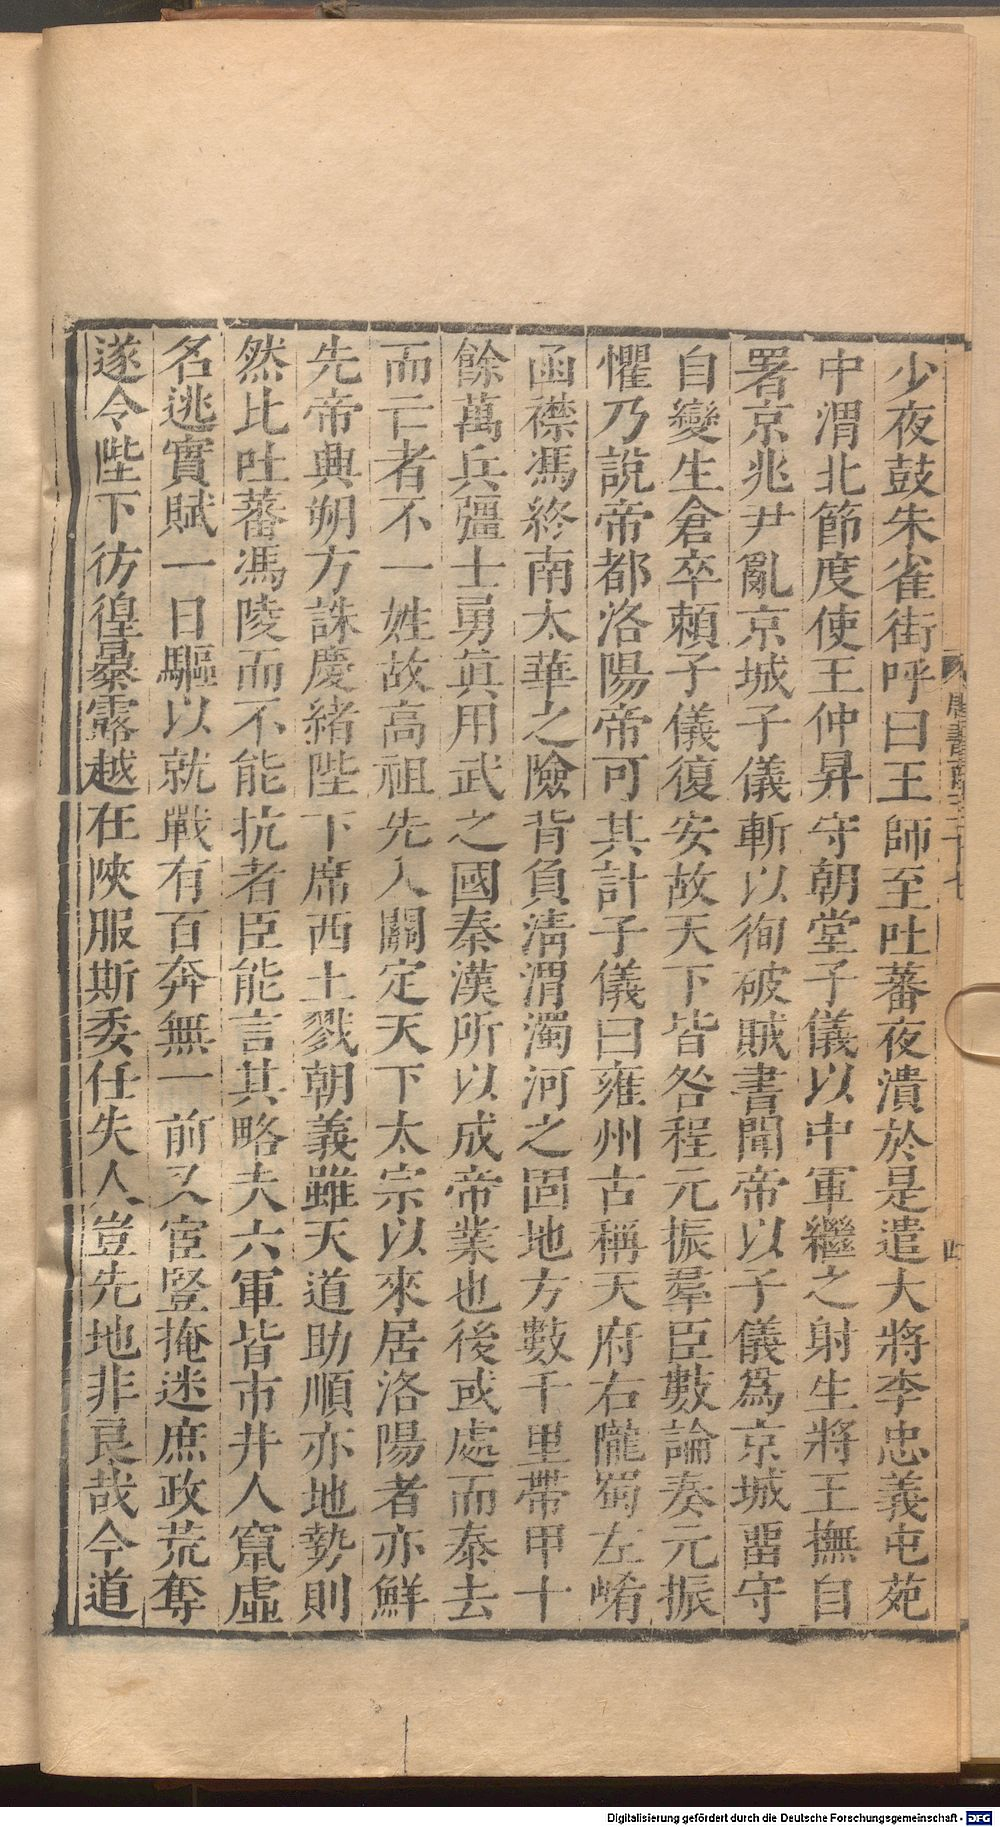 少夜鼓朱雀街呼曰王師至吐蕃夜潰於是遣大將李忠義屯苑
中渭北節度使王仲昇守朝堂子儀以中軍繼之射生將王撫自
署京兆尹亂京城子儀斬以徇破賊書聞帝以子儀爲京城畱守
自變生倉卒賴子儀復安故天下皆咎程元振羣臣數論奏元振
懼乃說帝都洛陽帝可其計子儀曰雍州古稱天府右隴蜀左崤
函襟馮終南太華之險背負淸渭濁河之固地方數千里帶甲十
餘萬兵彊士勇眞用武之國秦漢所以成帝業也後或處而泰去
而亡者不一姓故高祖先入關定天下太宗以來居洛陽者亦鮮
先帝興朔方誅慶緒陛下席西土戮朝義雖天道助順亦地勢則
然比吐蕃馮陵而不能抗者臣能言其略夫六軍皆市井人竄虛
名逃實賦一日驅以就戰有百奔無一前又宦豎掩迷庶政荒奪
遂令陛下彷徨暴露越在陝服斯委任失人豈先地非良哉今道
Digitalisierung gefördert durch die Deutsche Forschungsgemeinschaft - DFG